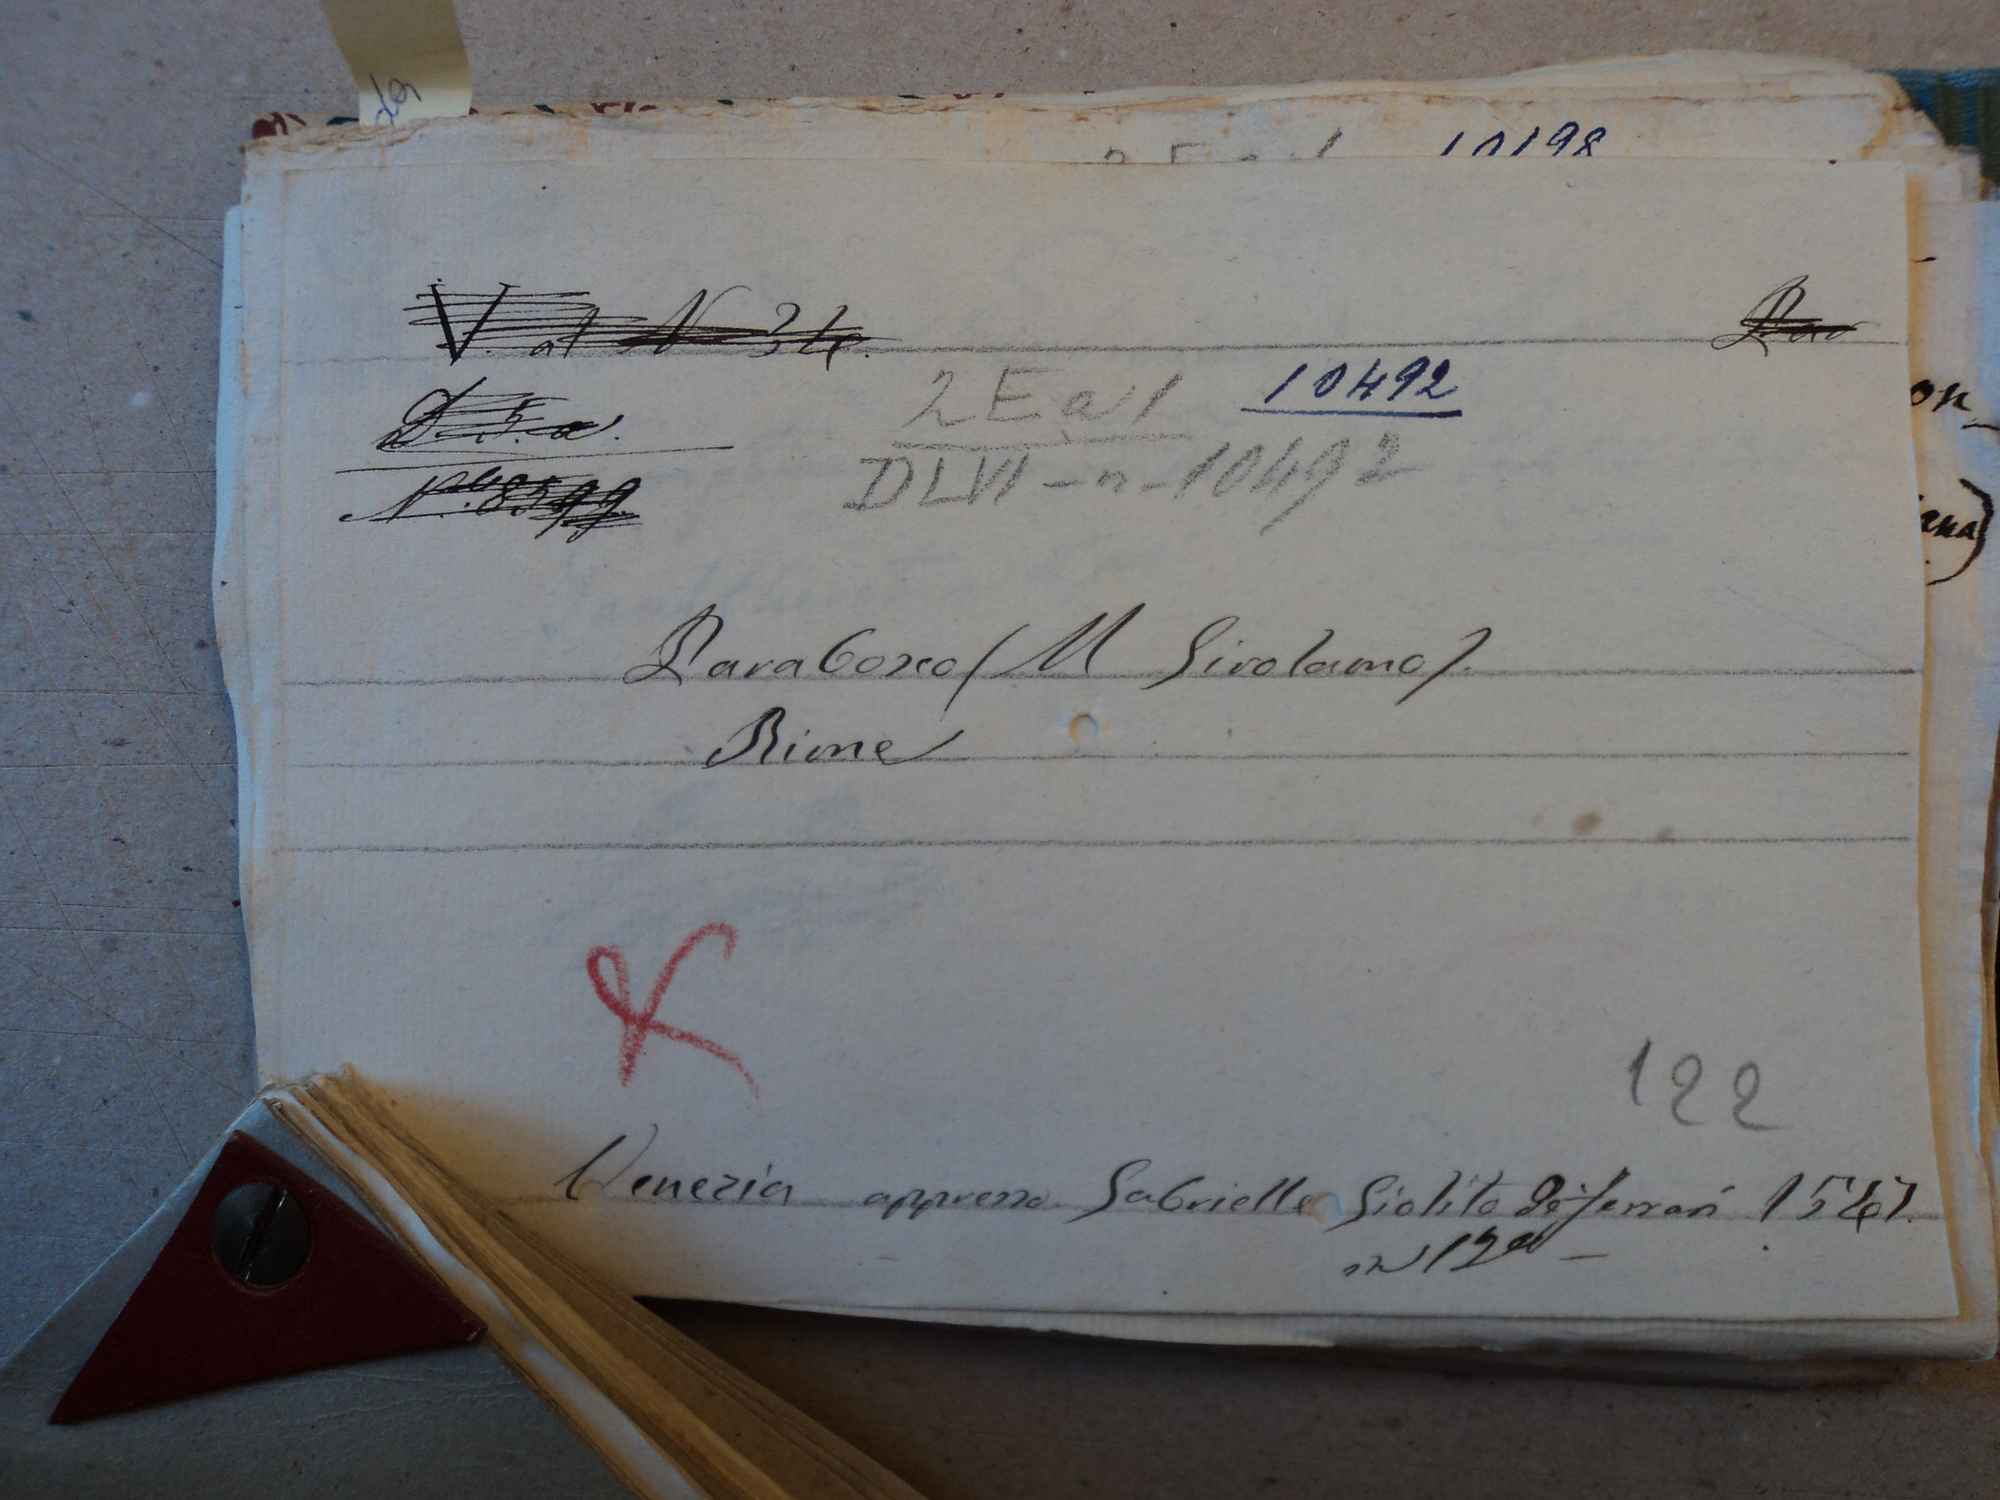 10198
V. at N 34.
D. 5. a.
10492
2 E a 1
DLVI - n - 10492
N.° 8599
on
ana)
Parabosco (M Girolamo).
Rime
122
Venezia appresso Gabrielle Giolito de ferrari 1547.
in 12°